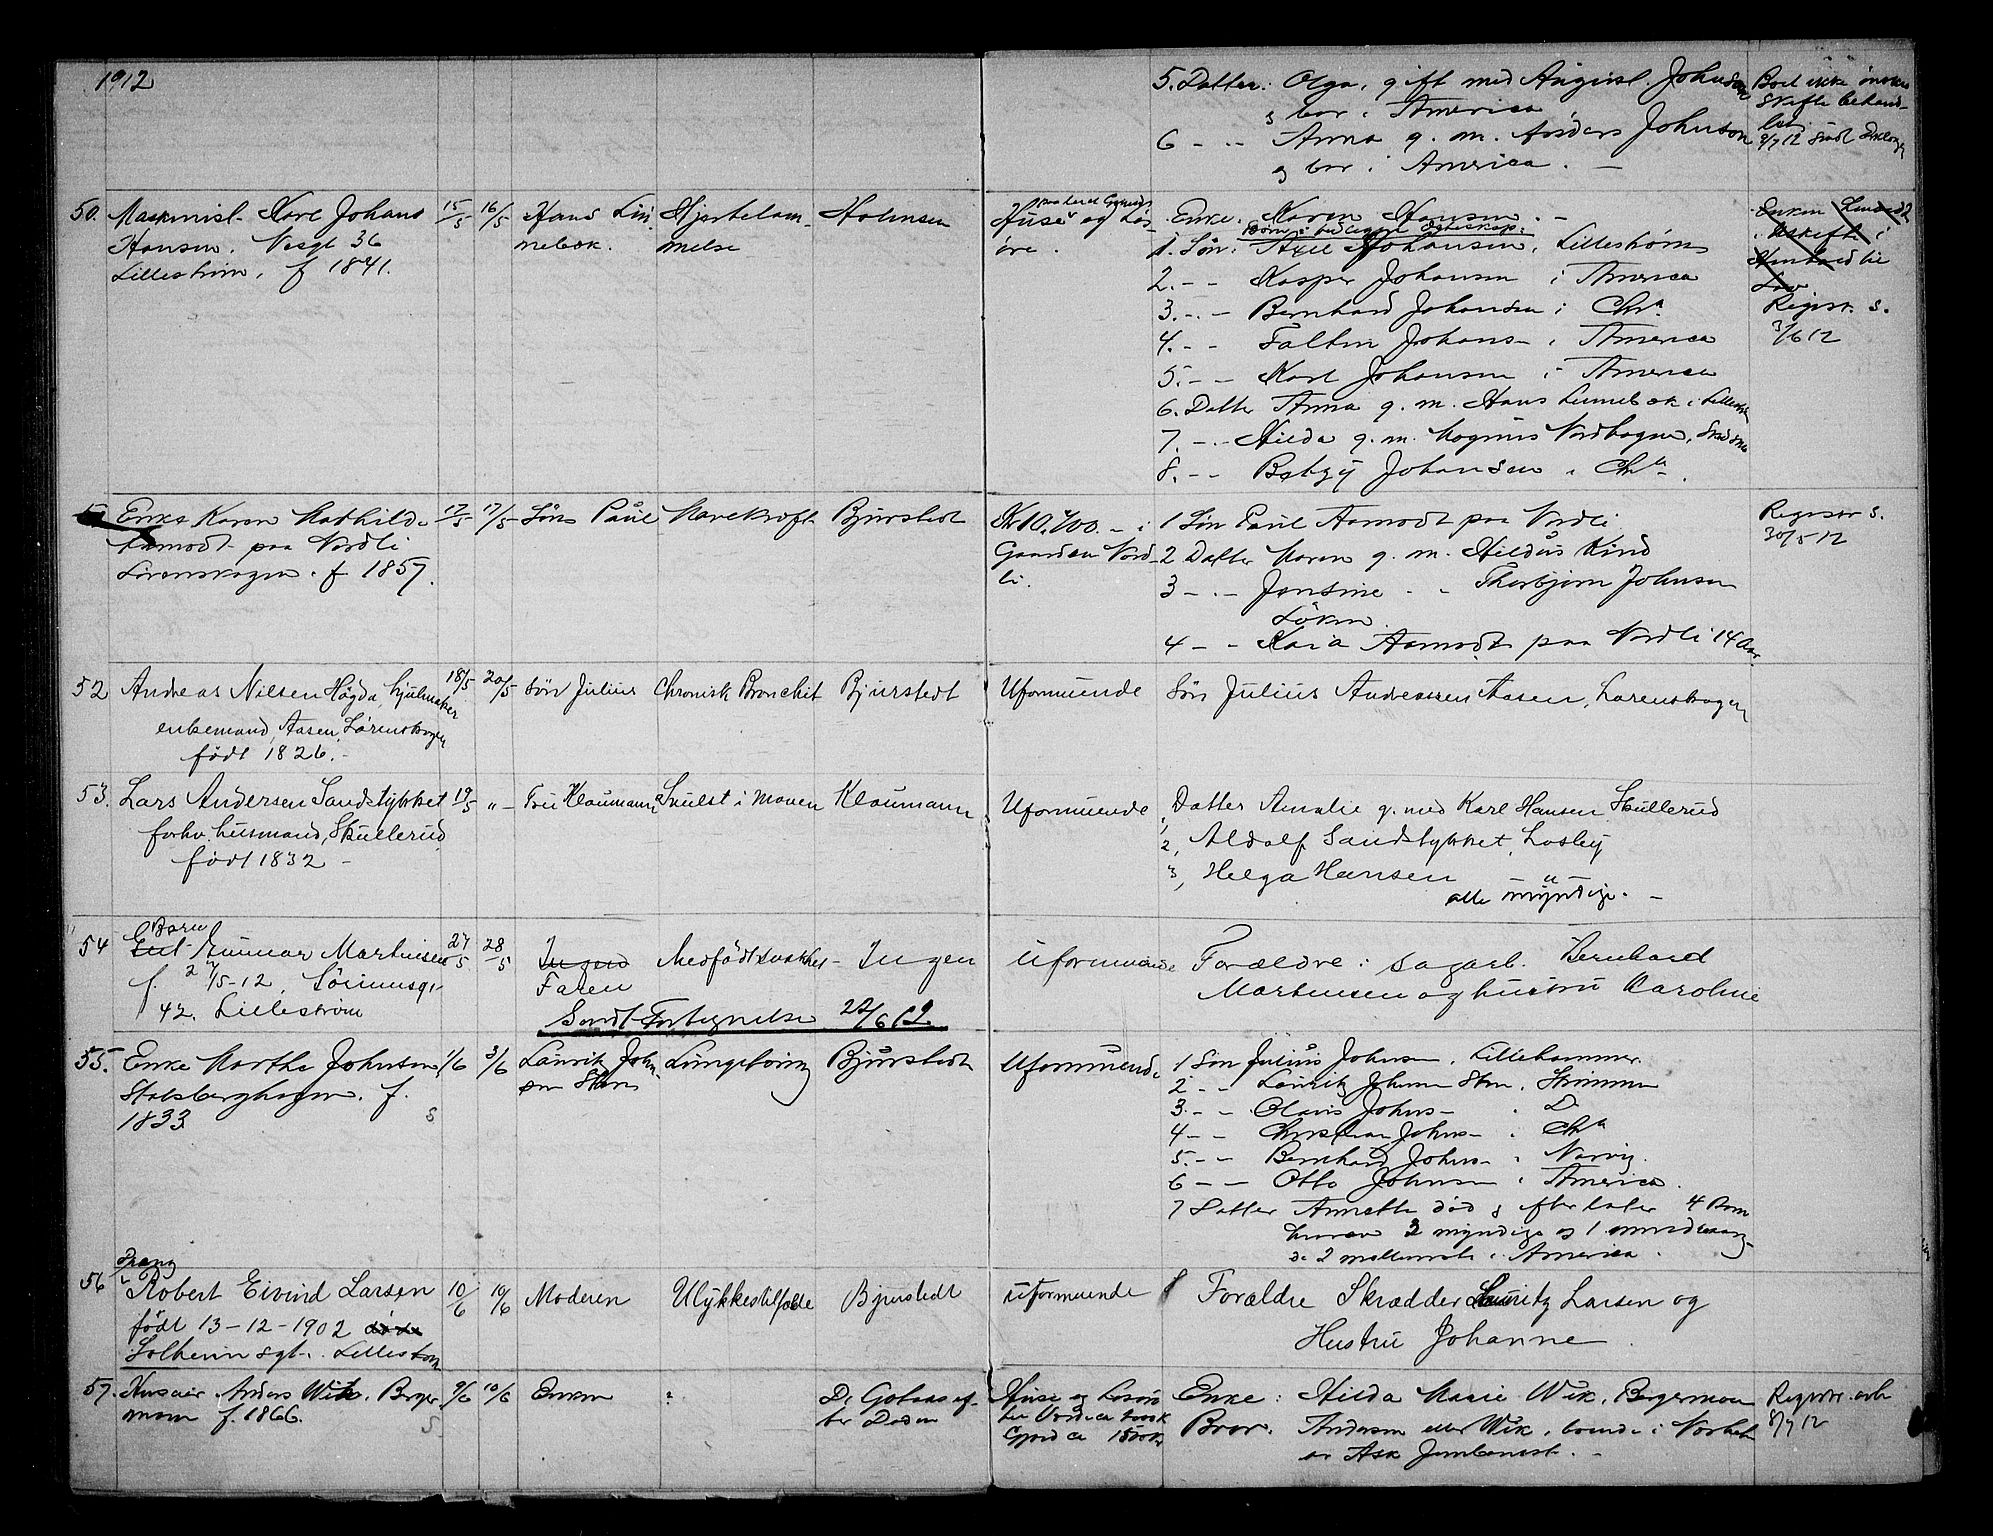 1912
5. Datter: Olga, gift med August Johnson
og bor i America
6 - - Anna g. m. Anders Johnson
og bor i America. -
Boet ikke
skifte behand-
9/7 12
50. Maskinist Karl Johans
Hansen. Vosgt 36
Lillestrøm. f 1841.
15/5
16/5
Hans Lun-
nebæk.
Hjertelam-
melse
Holmsen
Huse og Løs-
øre.
Enke. Karen Hansen. -
1. Søn: Axel Johansen, Lillestrøm
2. - - Kasper Johansen i America
3. - - Bernhard Johansen i Chra
4. - - Johans - i America
5. - - Karl Johansen i America
6. Datter Anna g. m. Hans Lunnebæk i Lillestrøm
7. - - Hilda g. m. Magnus Nordhagen,
8. - - Betzy Johansen i Chra
Enken
Uskifte i
Henhold til
Lov
Registr. s.
3/6 12
Enke Karen Mathilde
Aamodt paa Nordli
Lørenskogen. f 1857.
17/5
17/5
Søn Paul
Mavekræft
Bjurstedt
Kr 10.700. - i
Gaarden Nord-
li.
1 Søn Paul Aamodt paa Nordli
2 Datter Maren g. m. Hildus Rind
3 - - Jonsine - " Thorbjørn Johnsen
Løken
4 - - Kaia Aamodt paa Nordli 14 Aar
Registr s.
30/5 12
52 Andreas Nilsen Høgda, hjulmaker
enkemand, Aasen, Lørenskogen
født 1826. -
18/5
20/5
Søn Julius
Chronisk Bronchit
Bjurstedt
Uformuende
Søn Julius Andreassen Aasen, Lørenskogen
53. Lars Andersen Sandstykket
forhv. husmand, Skullerud
født 1832 -
19/5
" -
Fru Klaumann
Svulst i Maven
Klaumann
Uformuende
1, Datter Amalie g. med Karl Hansen Skullerud
2, Aldolf Sandstykket, Losby
3, Helga Hansen - " -
alle myndige. -
54 Barn
Gunnar Martinsen
f. 27/5-12, Sørumsgt
42. Lillestrøm
27/5
28/5
Ingen
Faren
Medfødt svakhet
Ingen
Sendt Fortegnelse 22/6 12
Uformuende
Forældre: sagarb. Bernhard
Martinsen og hustru Karoline
55. Enke Marthe Johnsen
Stalsberghagen. f.
1833
S
1/6
3/6
Lauritz John-
sen
Lungebetæn
Bjurstedt
Uformuende
1 Søn Julius Johnsen, Lillehammer
2 - - Lauritz Johnsen, Strømmen
3. - - Olavis Johns - . D.
4 - - Christian Johns - i Chra
5. - - Bernhard Johns - i Narvig.
6 - - Otto Johnsen i America.
7 Datter Annette død og efterlater 4 Børn
hvorav 3 myndige og 1 umyndig
America.
56 Dreng
Robert Eivind Larsen
født 13-12-1902
Solheimsgt. Lillestrøm
10/6
10/6
Moderen
Ulykkestilfælde
Bjurstedt
Uformuende
Forældre Skrædder Lauritz Larsen og
Hustru Johanne
57. Huseier Anders Wik. Berger
moen f. 1866.
S.
9/6
10/6
Enken
?
Dr Gotaas ef-
ter Døden
Huse og Løsøre
Gjæld ca 1500 kr
Enke: Hilda Marie Wik, Bergermoen
Bror: Anderson eller Wik, boende i
Ask
Registr.
8/7 12